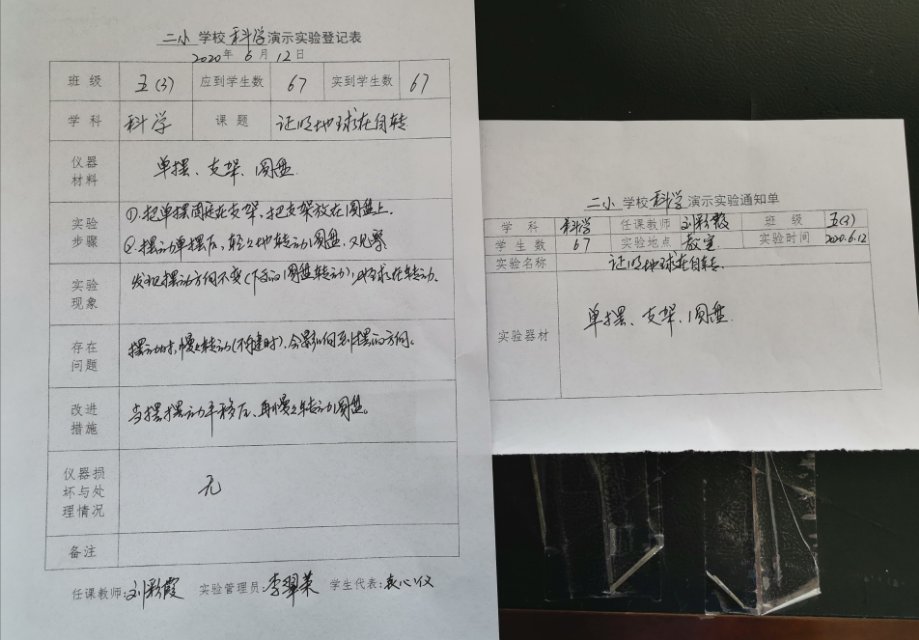 二小 学校 科学 演示实验登记表
2020 年 6 月 12 日
班 级 五(3) 应到学生数 67 实到学生数 67
学 科 科学 课 题 证明地球在自转
仪器材料 单摆、支架、圆盘.
实验步骤 ①.把单摆固定在支架,把支架放在圆盘上.
②.摆动单摆后,轻轻地转动圆盘,观察
实验现象 发现摆动方向不变(下面的圆盘转动),地球在转动.
存在问题 摆动时,慢慢转动(不能过时),会影响到摆的方向。
改进措施 当摆摆动平稳后,再慢慢转动圆盘。
仪器损坏与处理情况 无
备注
任课教师:刘彩霞 实验管理员:李翠菜 学生代表:袁心仪
二小 学校 科学 演示实验通知单
学 科 科学 任课教师 刘彩霞 班 级 五(3)
学 生 数 67 实验地点 教室 实验时间 2020.6.12
实验名称 证明地球在自转.
实验器材 单摆、支架、圆盘.